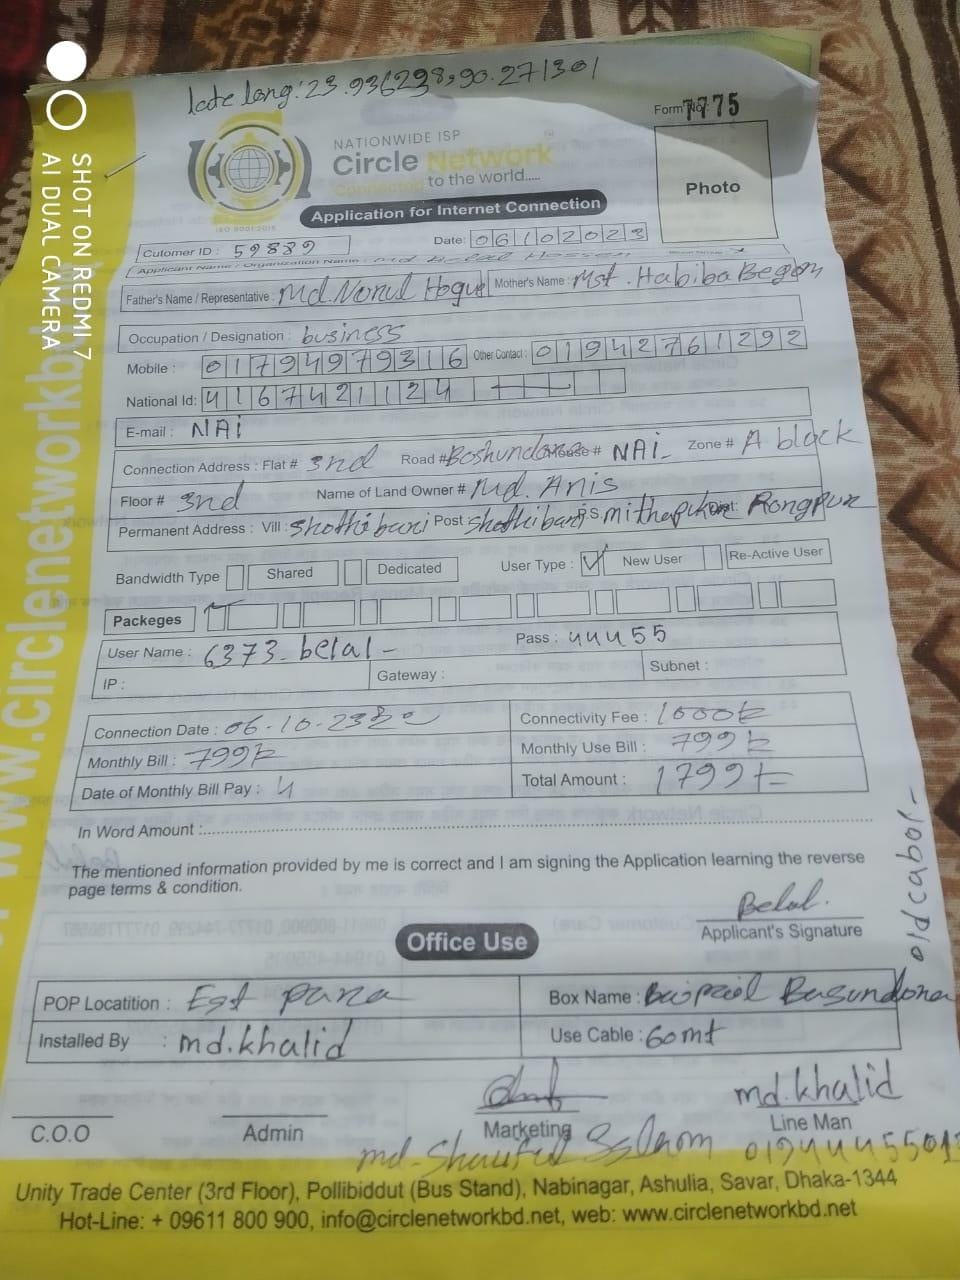 late long: 23.936298,90.271301
Form No: 7775
NATIONWIDE ISP
Circle Network
Connecting to the world.....
ISO 9001:2015
Photo
Application for Internet Connection
Cutomer ID : 59889
Date: 06102023
Applicant Name / Organization Name : md Belal Hossen
Father's Name / Representative : md. Norul Hoque Mother's Name : Mst. Habiba Begom
Occupation / Designation : business
Mobile : 01794979316 Other Contact : 01942761292
National Id: 4167421124
E-mail : NAi
Connection Address : Flat # 3nd Road # Boshundora House # NAI- Zone # A block
Floor # 3nd Name of Land Owner # Md. Anis
Permanent Address : Vill : Shothibari Post : Shothibari P.S. mithapukur Dist: Rongpur
Bandwidth Type Shared Dedicated User Type : ✓ New User Re-Active User
Packeges
User Name : 6373-belal- Pass : 44455
IP : Gateway : Subnet :
Connection Date : 06-10-23 Connectivity Fee : 1000
Monthly Bill : 799 Monthly Use Bill : 799
Date of Monthly Bill Pay : 4 Total Amount : 1799
In Word Amount :
The mentioned information provided by me is correct and I am signing the Application learning the reverse
page terms & condition.
Belal.
Applicant's Signature
Office Use
POP Locatition : Est para Box Name : Baipail Basundora
Installed By : md.khalid Use Cable : 60mt
md.khalid
C.O.O Admin Marketing Line Man
md. Shariful Islam
Unity Trade Center (3rd Floor), Pollibiddut (Bus Stand), Nabinagar, Ashulia, Savar, Dhaka-1344
Hot-Line: + 09611 800 900, info@circlenetworkbd.net, web: www.circlenetworkbd.net
www.circlenetworkbd
SHOT ON REDMI 7
AI DUAL CAMERA